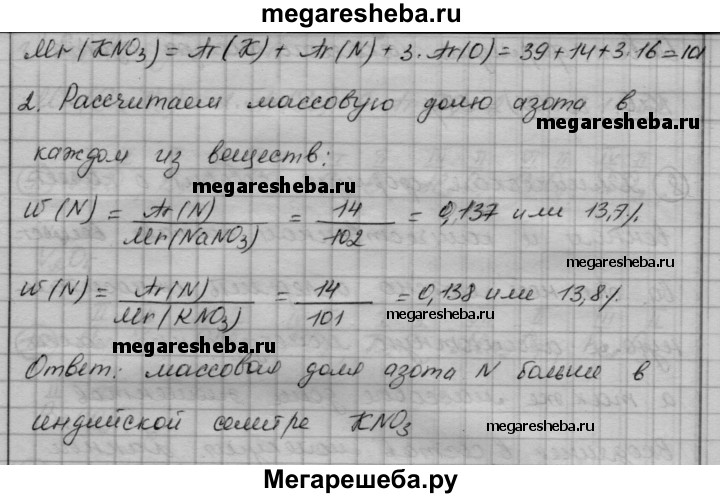 megaresheba.ru
Mr(KNO3) = Ar(K) + Ar(N) + 3·Ar(O) = 39+14+3·16=101
2. Рассчитаем массовую долю азота в
megaresheba.ru
каждом из веществ:
megaresheba.ru
w(N) = Ar(N) / Mr(NaNO3) = 14 / 102 = 0,137 или 13,7%
megaresheba.ru
w(N) = Ar(N) / Mr(KNO3) = 14 / 101 = 0,138 или 13,8%
megaresheba.ru
megaresheba.ru
Ответ: массовая доля азота N больше в
индийской селитре KNO3
megaresheba.ru
Мегарешеба.ру